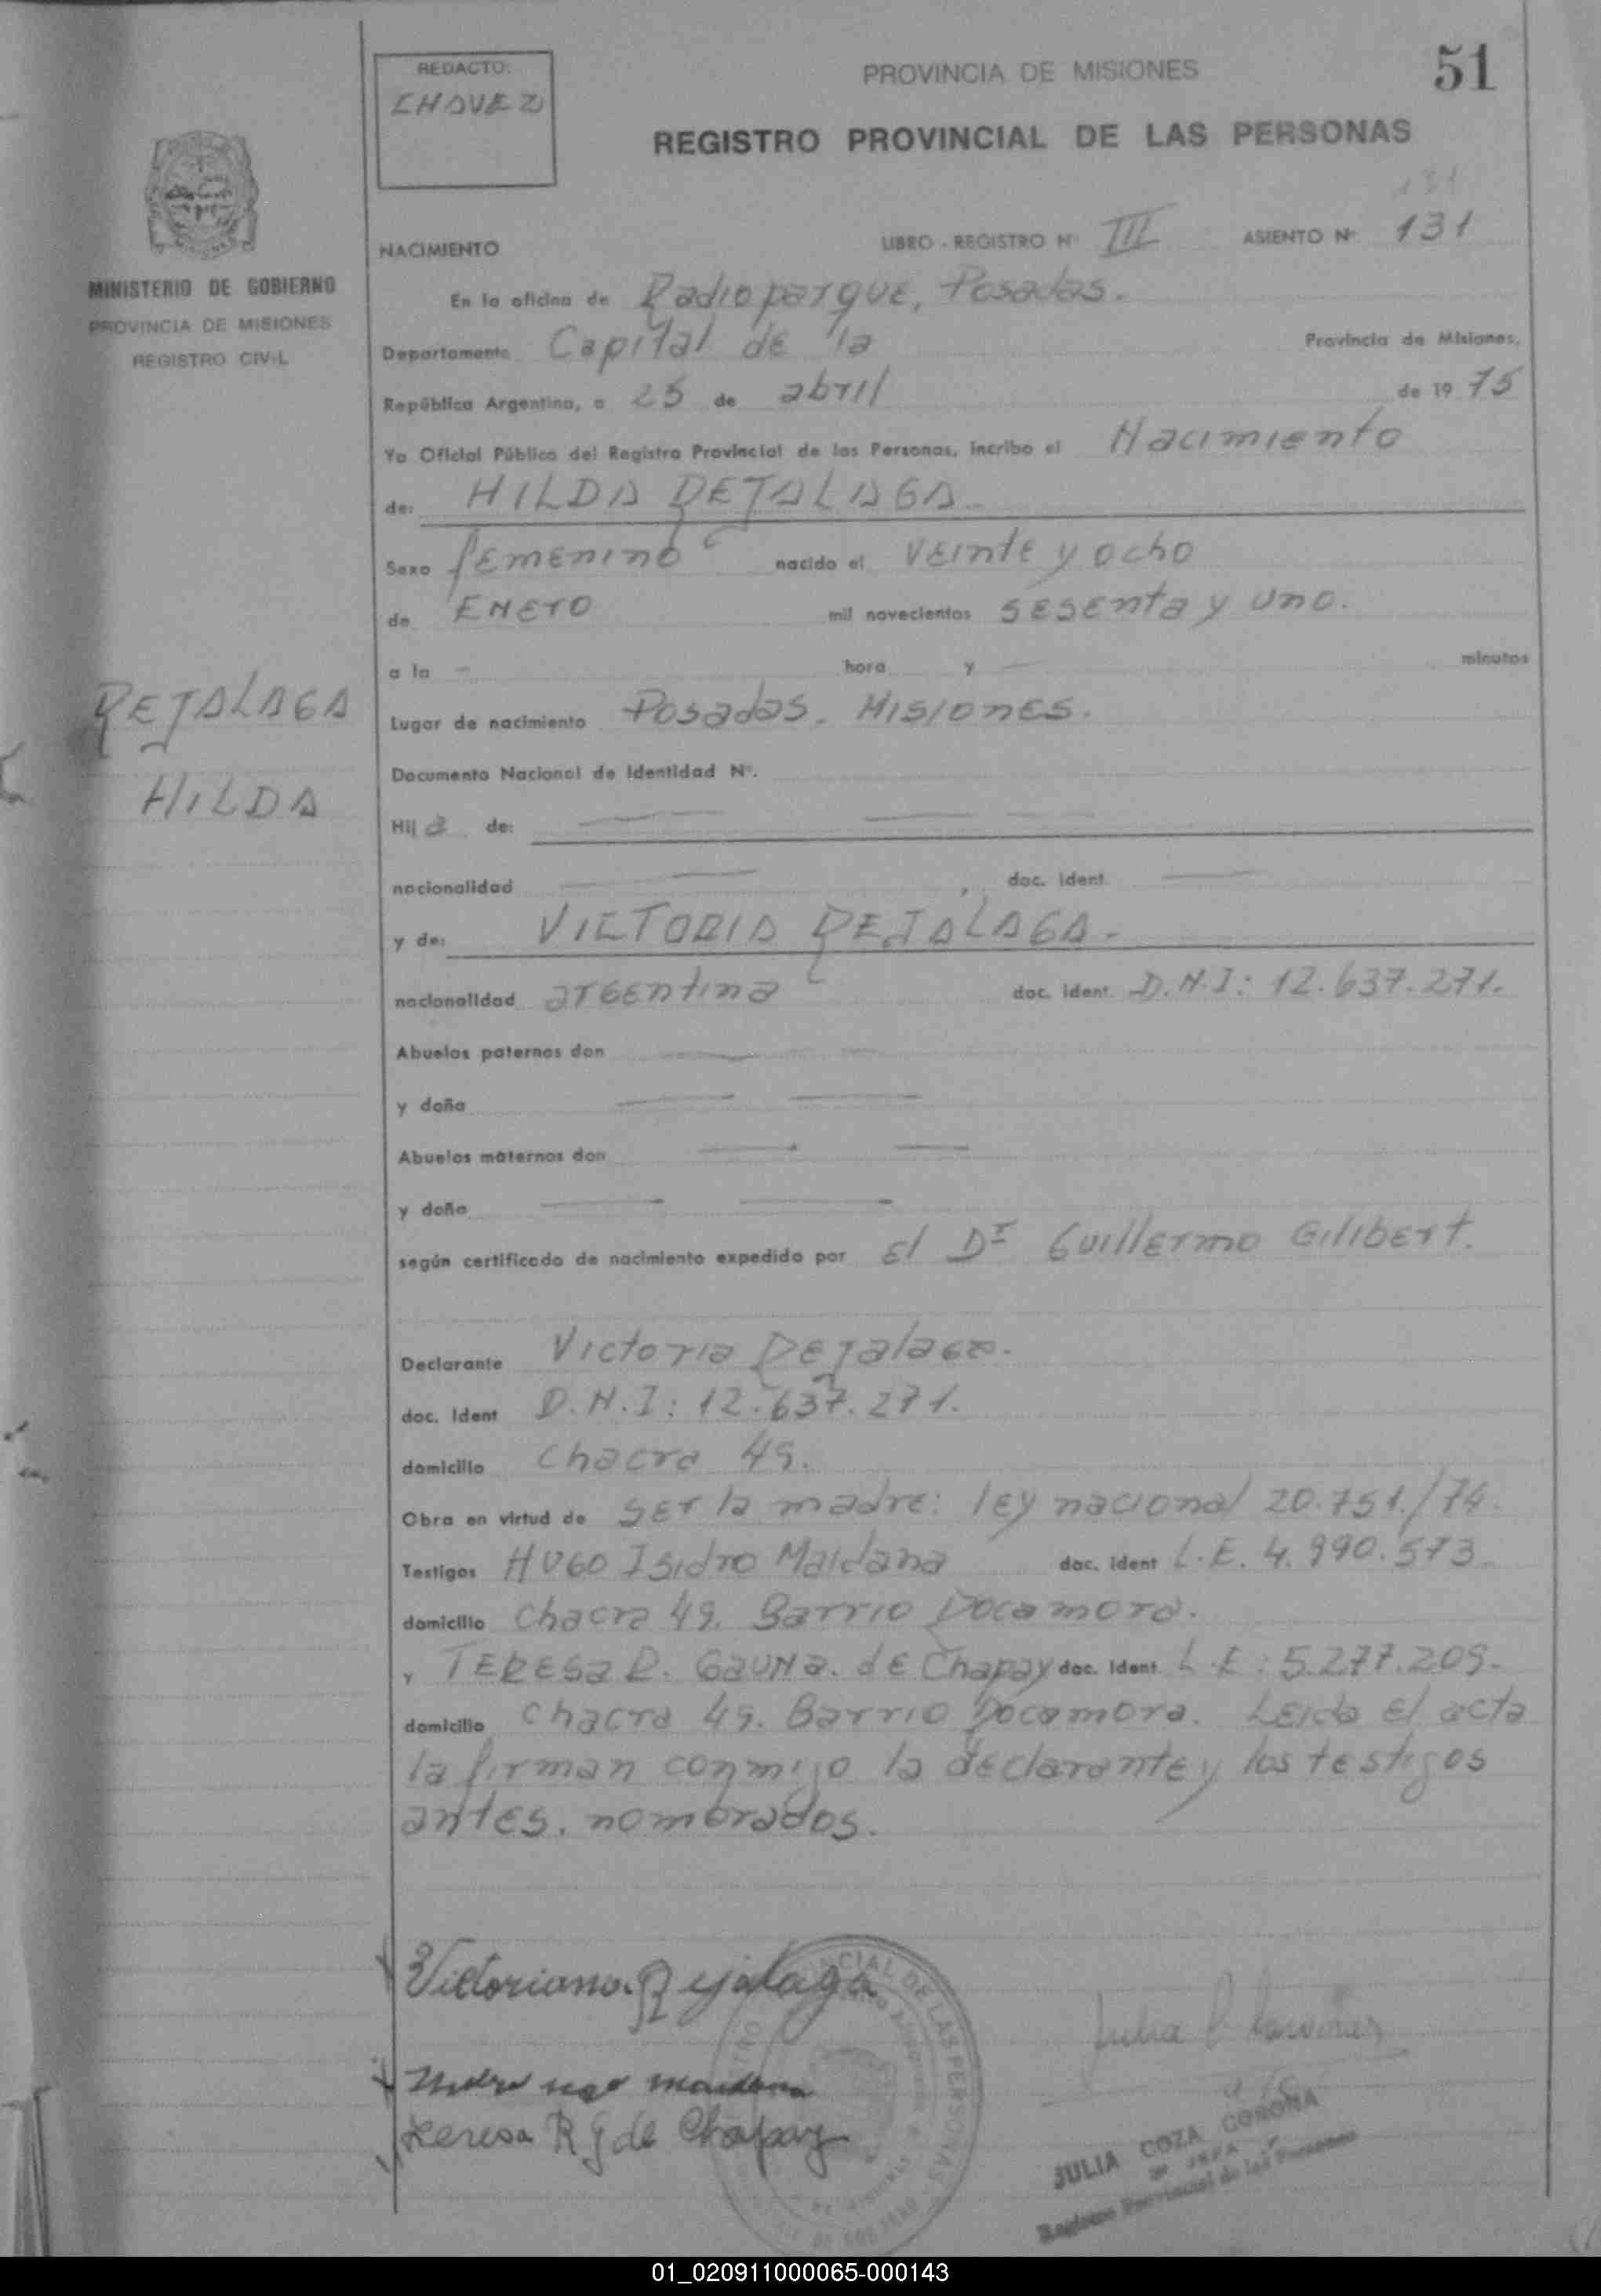 REDACTO:
CHAVEZ
PROVINCIA DE MISIONES
51
REGISTRO PROVINCIAL DE LAS PERSONAS
131
NACIMIENTO LIBRO - REGISTRO Nº III ASIENTO Nº 131
MINISTERIO DE GOBIERNO
PROVINCIA DE MISIONES
REGISTRO CIVIL
En la oficina de Radioparque, Posadas.
Departamento Capital de la Provincia de Misiones,
República Argentina, a 25 de abril de 1975
Yo Oficial Público del Registro Provincial de las Personas, incribo el Nacimiento
de: HILDA REJALAGA
Sexo femenino nacido el veinte y ocho
de ENERO mil novecientos sesenta y uno.
a la - hora y - minutos
REJALAGA
HILDA
Lugar de nacimiento Posadas. Misiones.
Documento Nacional de Identidad Nº.
Hija de:
nacionalidad , doc. ident.
y de: VICTORIA REJALAGA.
nacionalidad argentina doc. ident. D.N.I: 12.637.271.
Abuelos paternos don
y doña
Abuelos maternos don
y doña
según certificado de nacimiento expedido por El Dr Guillermo Gilibert.
Declarante Victoria Rejalaga.
doc. ident D.N.I: 12.637.271.
domicilio Chacra 49.
Obra en virtud de ser la madre: ley nacional 20.751./74.
Testigos HUGO Isidro Maidana doc. ident L.E. 4.990.573
domicilio Chacra 49. Barrio Rocamora.
y TERESA R. GAUNA. de Chapay doc. ident L.E: 5.277.209.
domicilio Chacra 49. Barrio Rocamora. Leida el acta
la firman conmigo la declarante y los testigos
antes. nombrados.
Victoriana Rejalaga
Teresa R G de Chapay
JULIA COZA CORONA
JEFA
Registro Provincial de las Personas
01_020911000065-000143